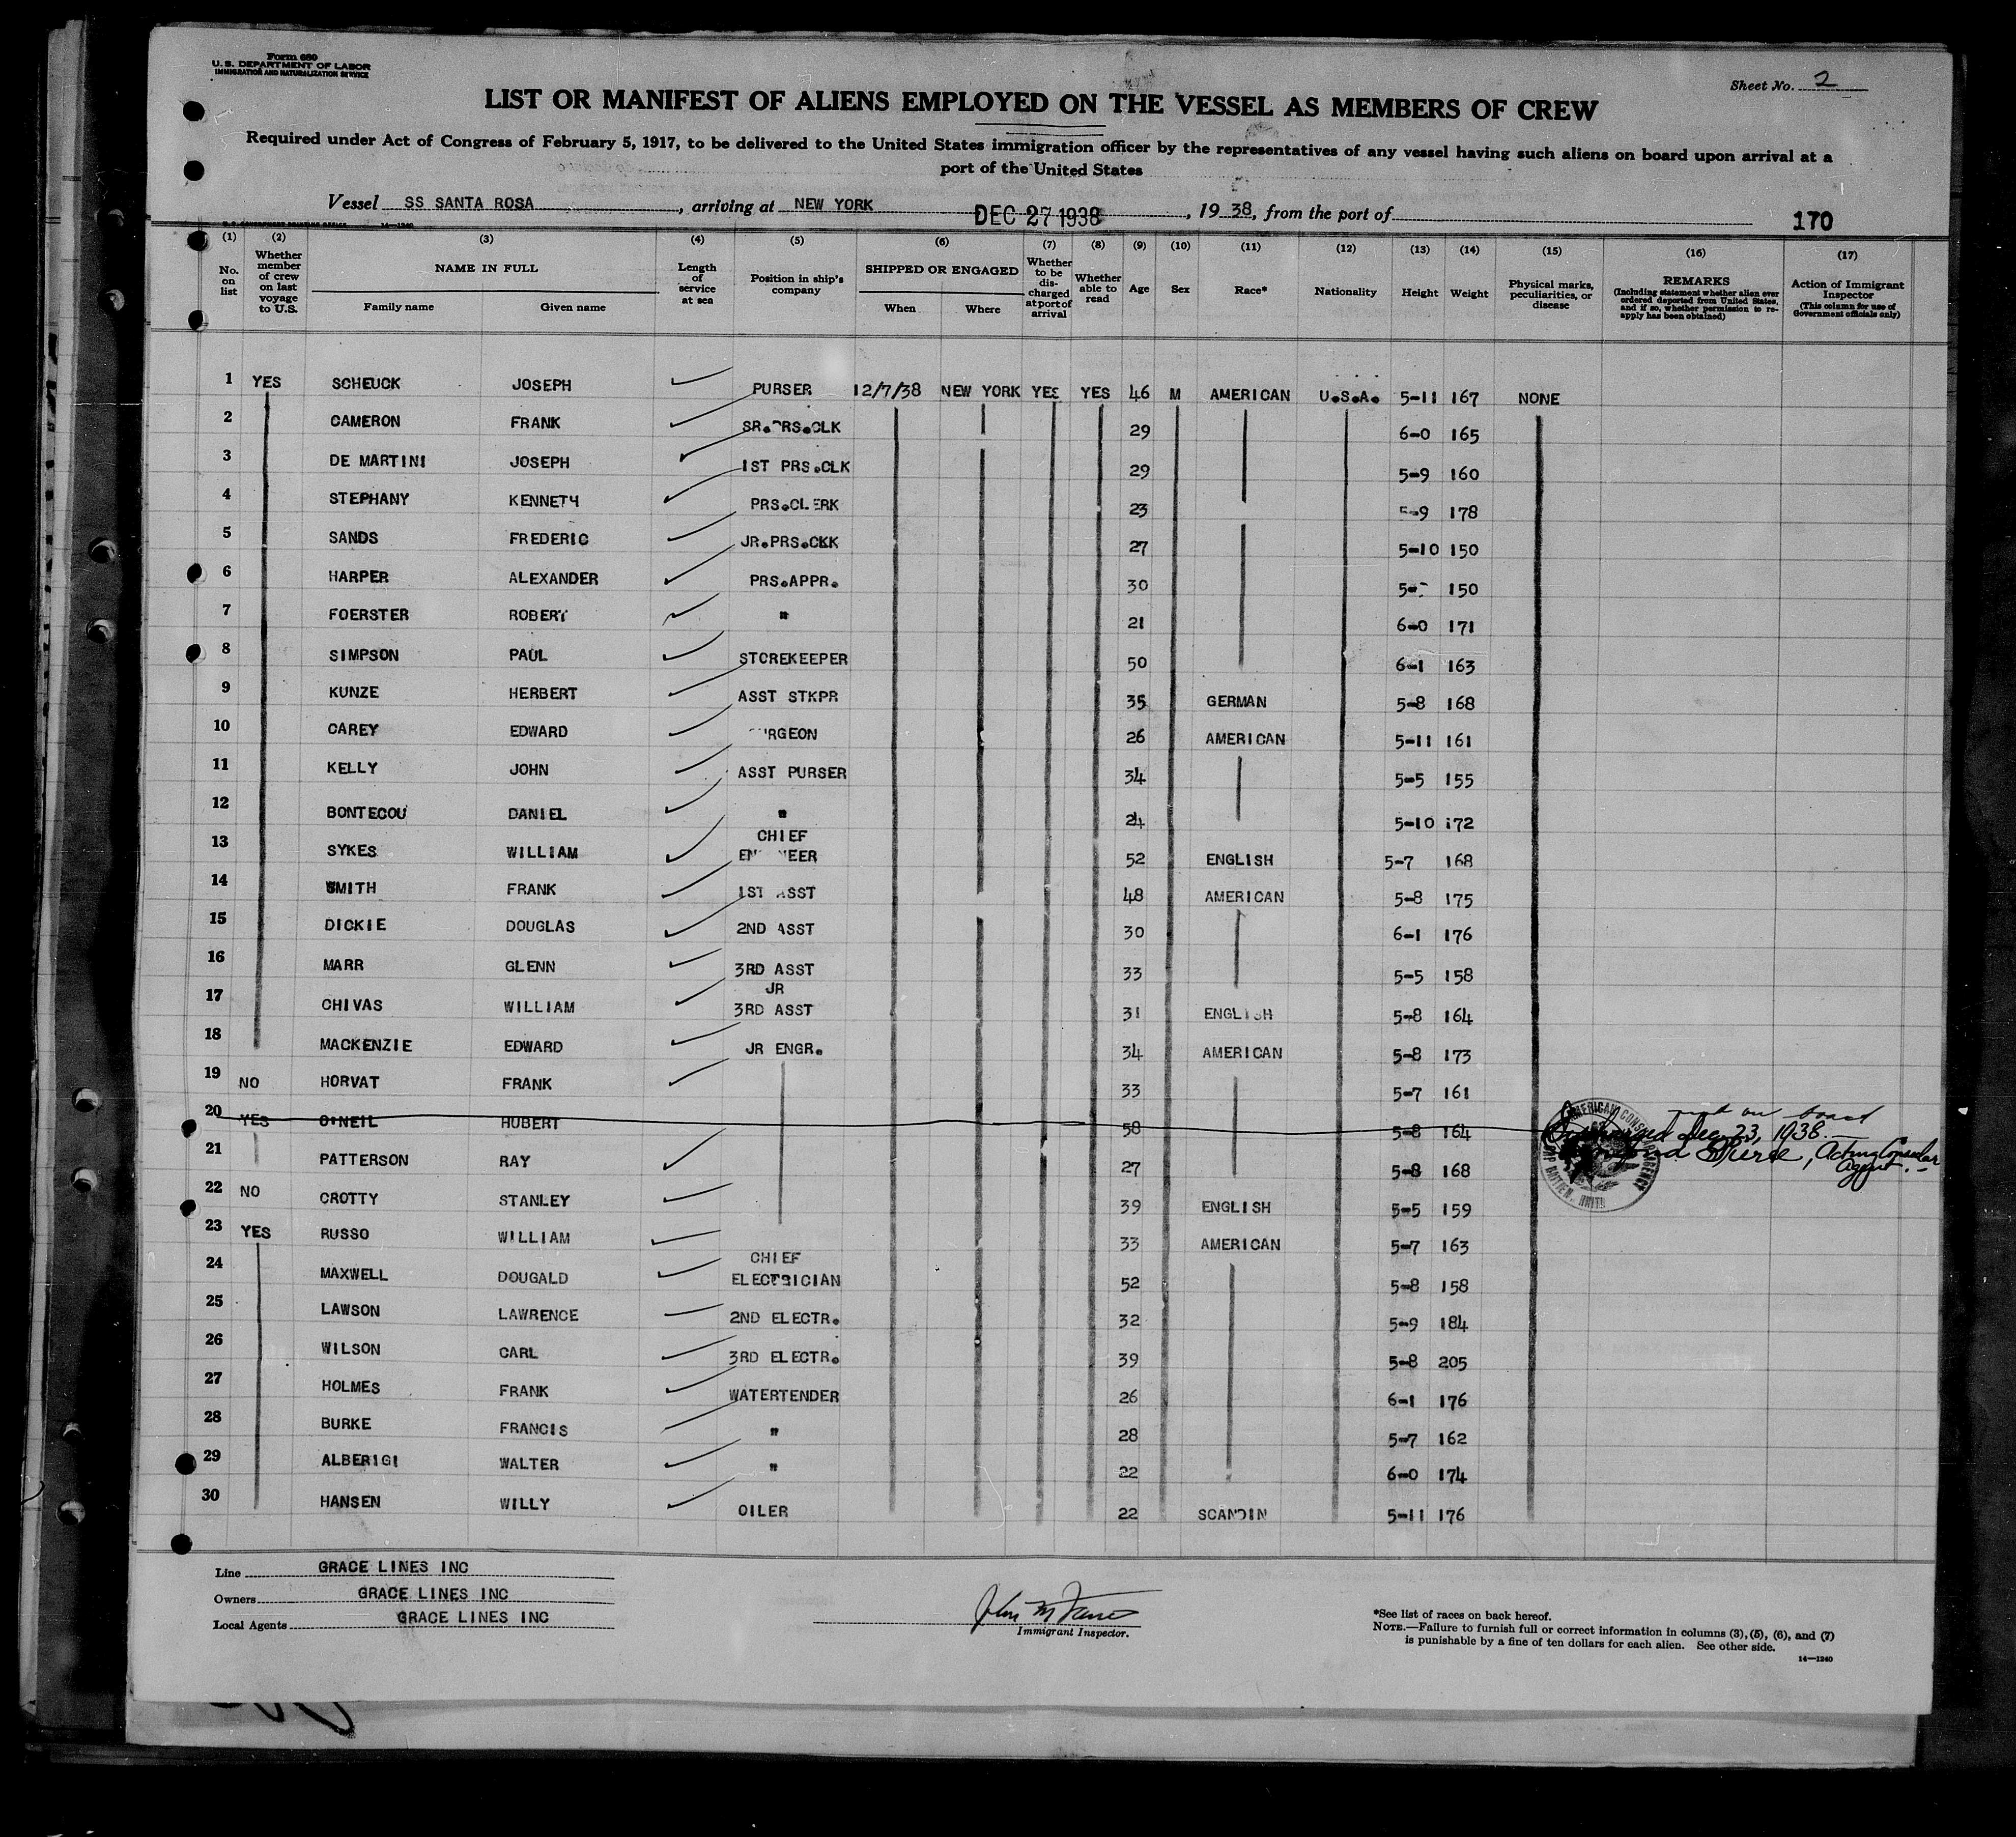 Form 680
U. S. DEPARTMENT OF LABOR
IMMIGRATION AND NATURALIZATION SERVICE
Sheet No. 2
LIST OR MANIFEST OF ALIENS EMPLOYED ON THE VESSEL AS MEMBERS OF CREW
Required under Act of Congress of February 5, 1917, to be delivered to the United States immigration officer by the representatives of any vessel having such aliens on board upon arrival at a
port of the United States
Vessel SS SANTA ROSA, arriving at NEW YORK DEC 27 1938, 19 38, from the port of
170
14—1240
(1) (2) (3) (4) (5) (6) (7) (8) (9) (10) (11) (12) (13) (14) (15) (16) (17)
No. on list
Whether member of crew on last voyage to U.S.
NAME IN FULL
Family name Given name
Length of service at sea
Position in ship's company
SHIPPED OR ENGAGED
When Where
Whether to be discharged at port of arrival
Whether able to read
Age
Sex
Race*
Nationality
Height
Weight
Physical marks, peculiarities, or disease
REMARKS
(Including statement whether alien ever ordered deported from United States, and if so, whether permission to reapply has been obtained)
Action of Immigrant Inspector
(This column for use of Government officials only)
1 YES SCHEUCK JOSEPH PURSER 12/7/38 NEW YORK YES YES 46 M AMERICAN U.S.A. 5-11 167 NONE
2 CAMERON FRANK SR.PRS.CLK 29 6-0 165
3 DE MARTINI JOSEPH 1ST PRS.CLK 29 5-9 160
4 STEPHANY KENNETH PRS.CLERK 23 5-9 178
5 SANDS FREDERIC JR.PRS.CKK 27 5-10 150
6 HARPER ALEXANDER PRS.APPR. 30 5- 150
7 FOERSTER ROBERT " 21 6-0 171
8 SIMPSON PAUL STOREKEEPER 50 6-1 163
9 KUNZE HERBERT ASST STKPR 35 GERMAN 5-8 168
10 CAREY EDWARD SURGEON 26 AMERICAN 5-11 161
11 KELLY JOHN ASST PURSER 34 5-5 155
12 BONTECOU DANIEL " 24 5-10 172
13 SYKES WILLIAM CHIEF ENGINEER 52 ENGLISH 5-7 168
14 SMITH FRANK 1ST ASST 48 AMERICAN 5-8 175
15 DICKIE DOUGLAS 2ND ASST 30 6-1 176
16 MARR GLENN 3RD ASST 33 5-5 158
17 CHIVAS WILLIAM JR 3RD ASST 31 ENGLISH 5-8 164
18 MACKENZIE EDWARD JR ENGR. 34 AMERICAN 5-8 173
19 NO HORVAT FRANK 33 5-7 161
20 YES O'NEIL HUBERT 58 5-8 164 not on board
Discharged Dec. 23, 1938.
Acting Consular Agent.
AMERICAN CONSULAR AGENCY CAP HAITIEN, HAITI
21 PATTERSON RAY 27 5-8 168
22 NO CROTTY STANLEY 39 ENGLISH 5-5 159
23 YES RUSSO WILLIAM 33 AMERICAN 5-7 163
24 MAXWELL DOUGALD CHIEF ELECTRICIAN 52 5-8 158
25 LAWSON LAWRENCE 2ND ELECTR. 32 5-9 184
26 WILSON CARL 3RD ELECTR. 39 5-8 205
27 HOLMES FRANK WATERTENDER 26 6-1 176
28 BURKE FRANCIS " 28 5-7 162
29 ALBERIGI WALTER " 22 6-0 174
30 HANSEN WILLY OILER 22 SCANDIN 5-11 176
Line GRACE LINES INC
Owners GRACE LINES INC
Local Agents GRACE LINES INC
Immigrant Inspector.
*See list of races on back hereof.
NOTE.—Failure to furnish full or correct information in columns (3), (5), (6), and (7)
is punishable by a fine of ten dollars for each alien. See other side.
14—1240